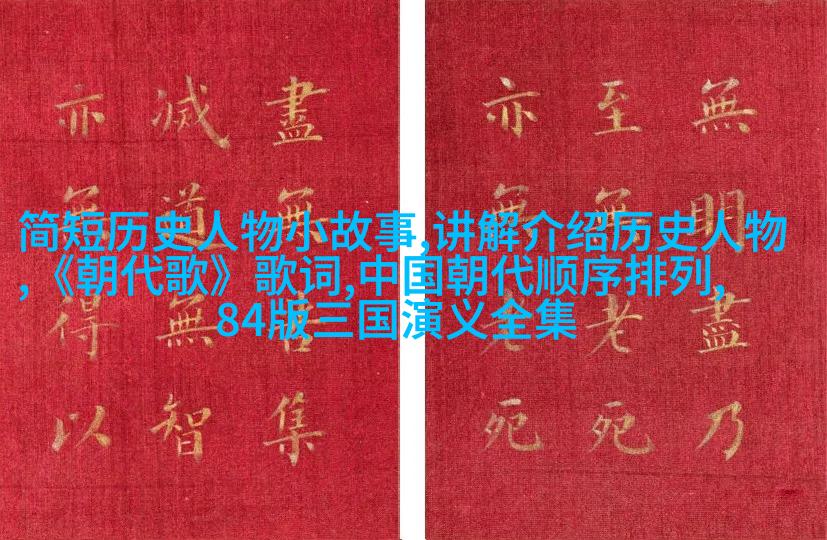 简短历史人物小故事,讲解介绍历史人物
,《朝代歌》歌词,中国朝代顺序排列,
84版三国演义全集
無明盡乃
至無老死
亦無老死
盡無苦集
滅道無智
亦無得以